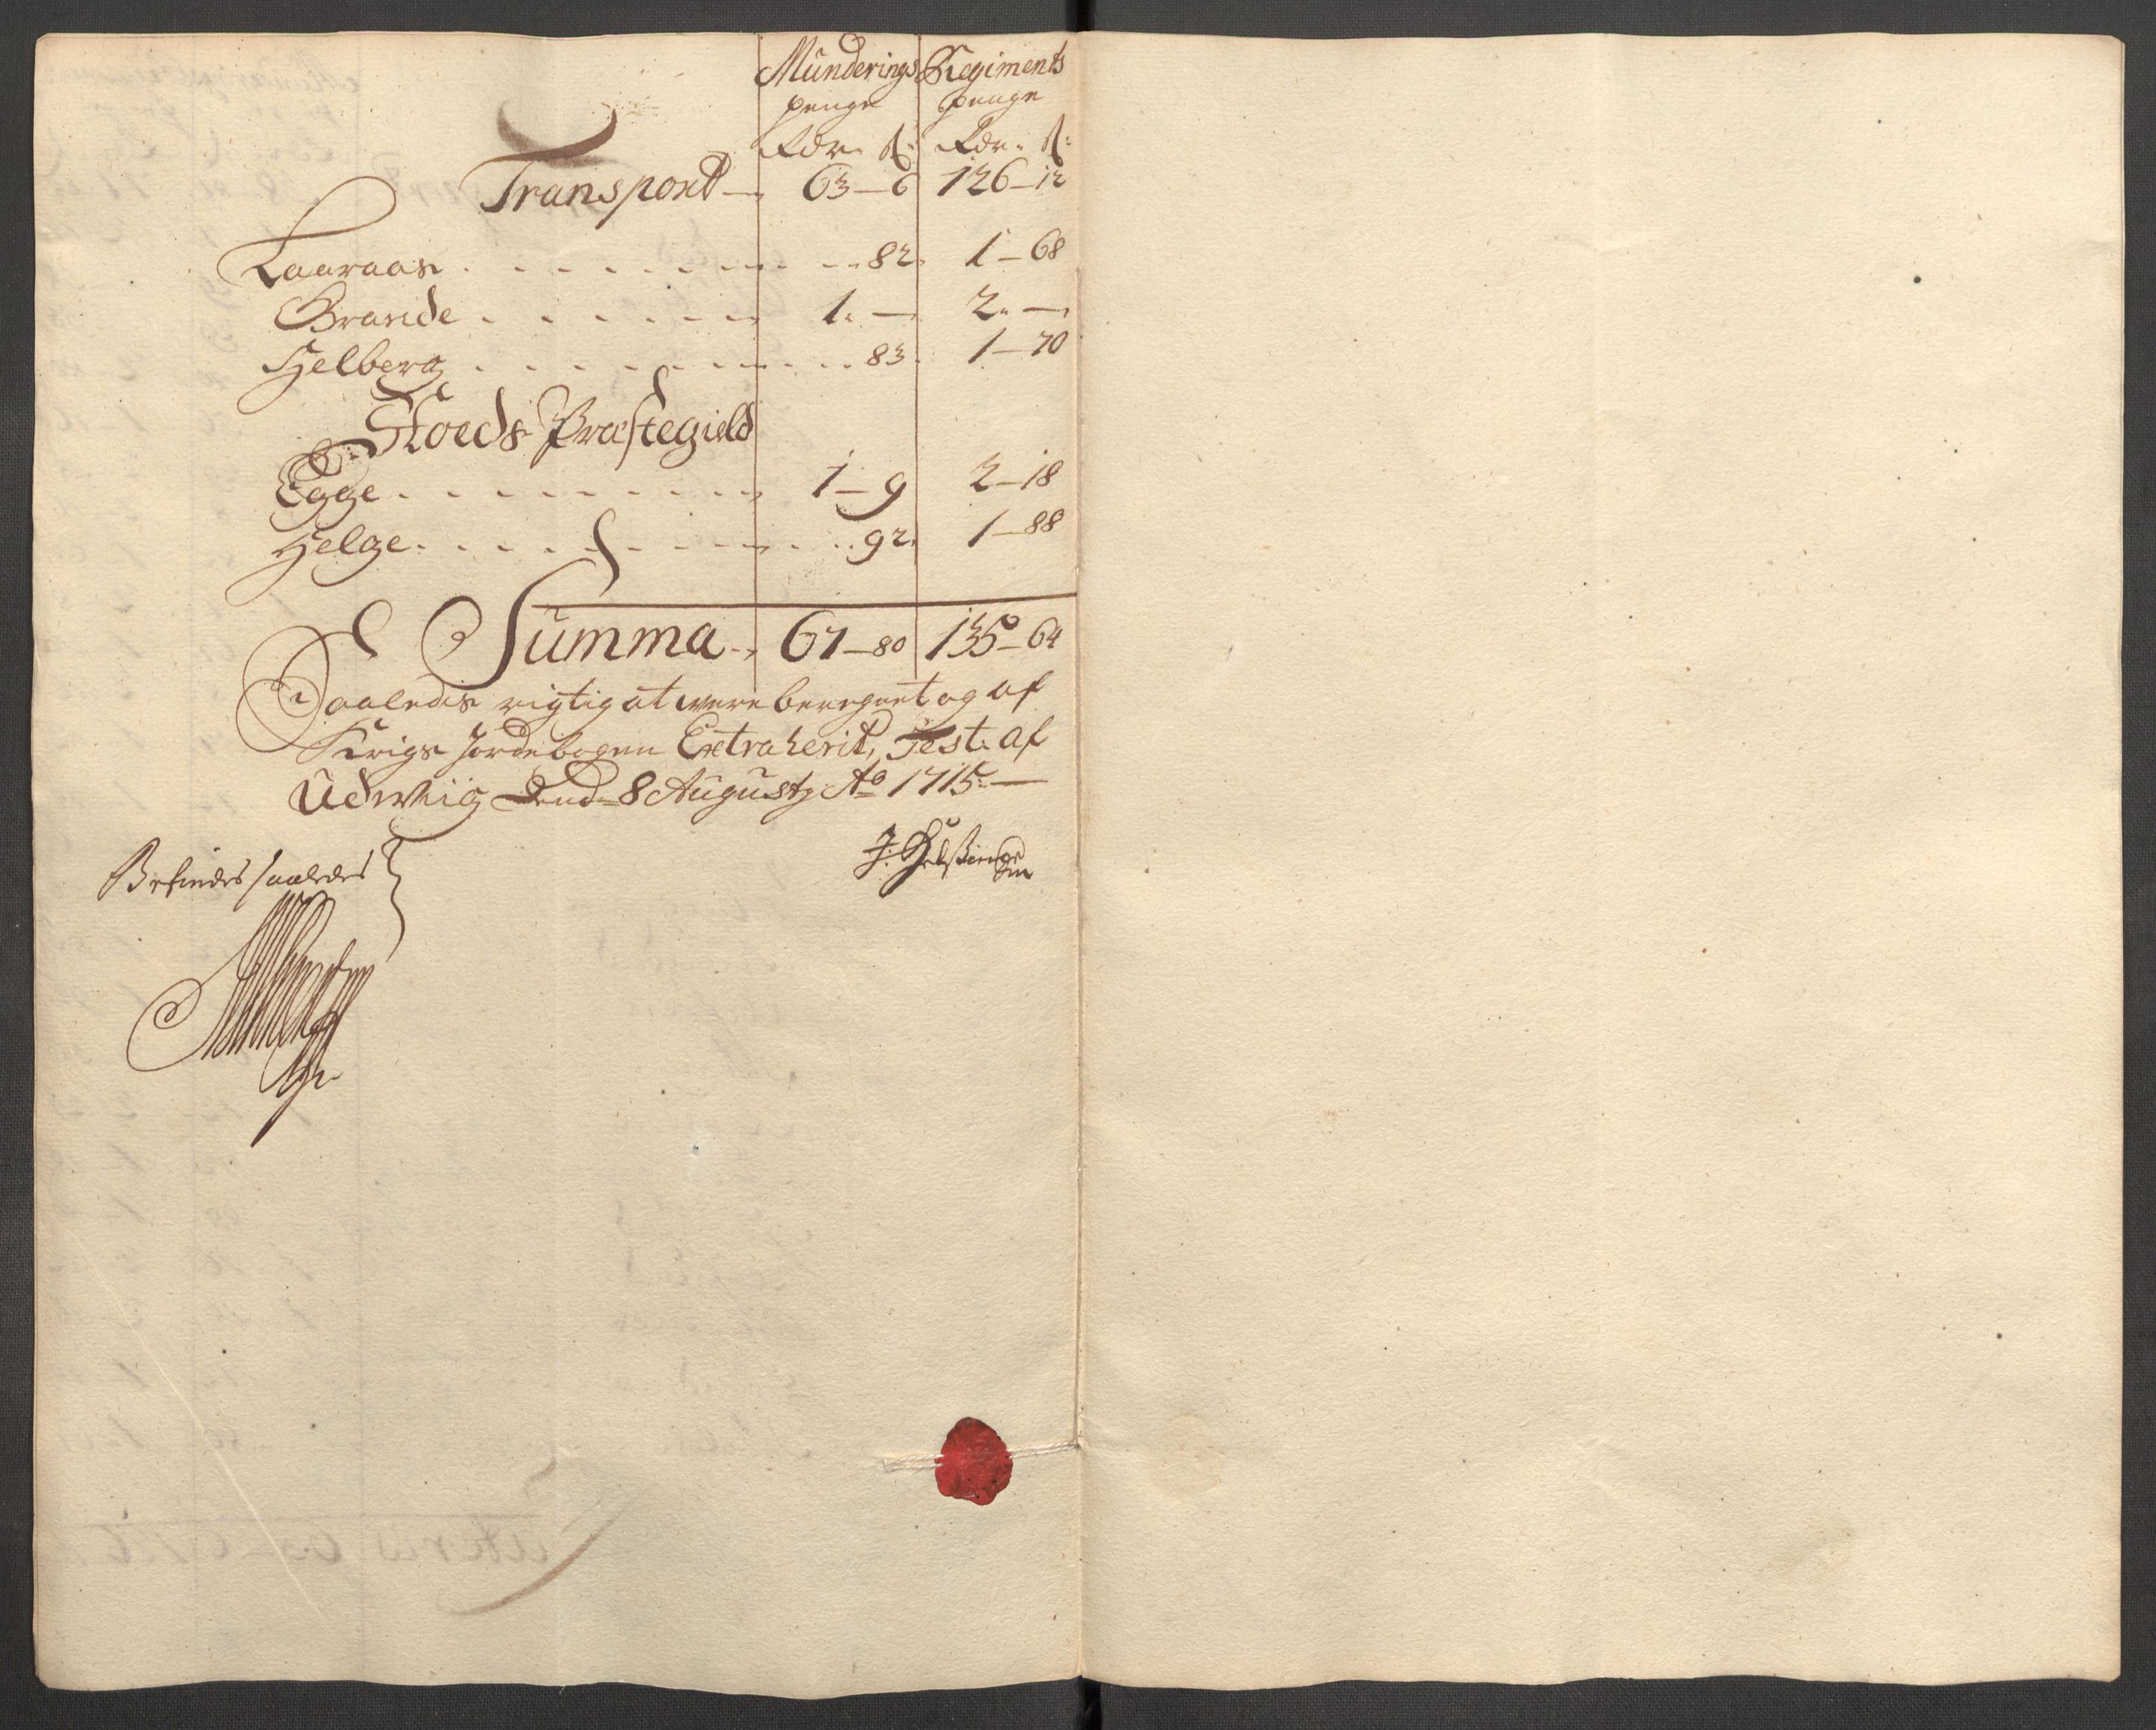 Munderings Regiments
penge penge
Rdr. s: Rdr. s:
Transport 63 – 6 126 – 12
Laaraas . . . . . . . 82. 1 – 68
Brande . . . . . . 1. – 2. –
Helberg . . . . . . . . 83. 1 – 70
Stoeds Præstegield
Egge . . . . . . . . . 1 – 9 2 – 18
Helge . . . . . . . . . 92. 1 – 88
Summa 67 – 80 135 – 64
Saaledis rigtig at were beregnet og af
Krigs Jordebogen Extraherit, Test: af
Udwiig Dend 8 Augustj Ao 1715. –
Befindes saaledes